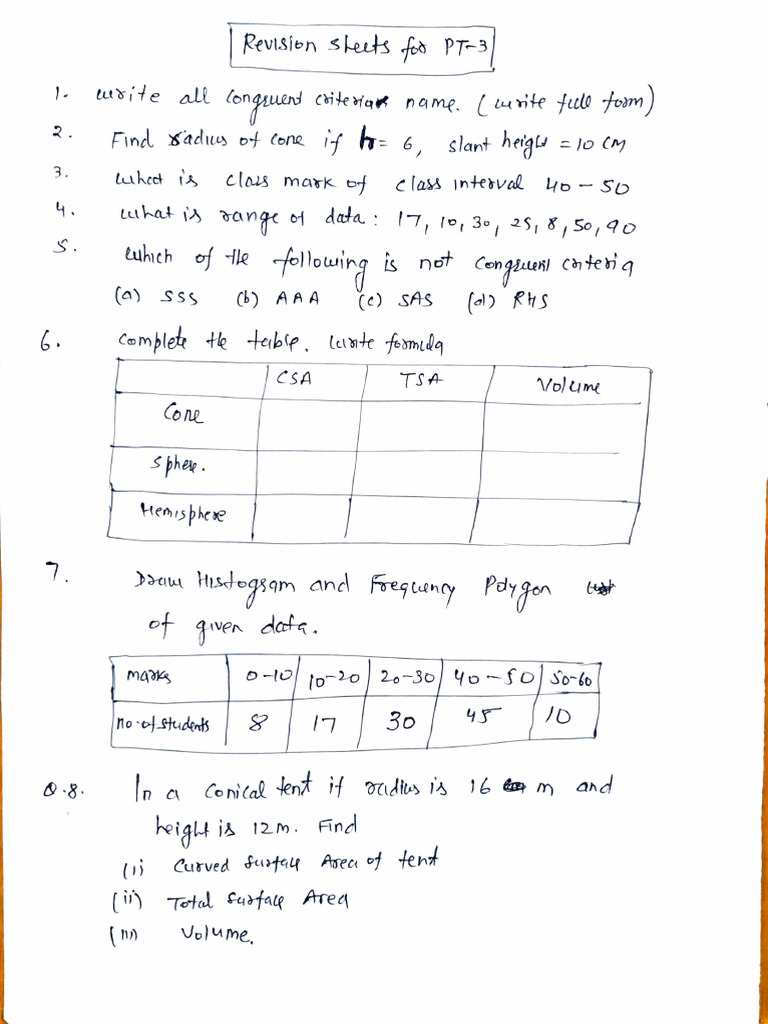 Revision Sheets for PT-3
1. Write all congruent criteria name. (Write full form)
2. Find radius of cone if h = 6, slant height = 10 CM
3. What is class mark of class interval 40 - 50
4. What is range of data : 17, 10, 30, 25, 8, 50, 90
5. Which of the following is not congruent criteria
(a) SSS (b) AAA (c) SAS (d) RHS
6. Complete the table. Write formula
CSA TSA Volume
Cone
Sphere.
Hemisphere
7. Draw Histogram and Frequency Polygon
of given data.
marks 0-10 10-20 20-30 40-50 50-60
no. of students 8 17 30 45 10
Q.8. In a conical tent if radius is 16 m and
height is 12m. Find
(i) Curved Surface Area of tent
(ii) Total Surface Area
(iii) Volume.